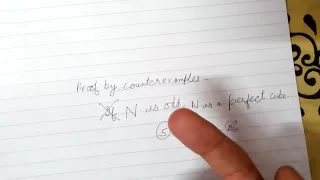 Proof by counterexamples -
If N is odd, N is a perfect cube.
5